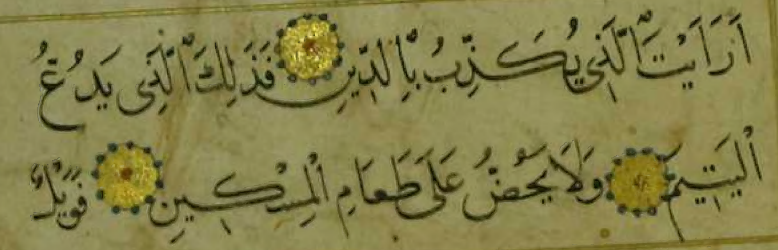 اَرَاَيْتَ الَّذِي يُكَذِّبُ بِالدِّينِ فَذَلِكَ الَّذِي يَدُعُّ
الْيَتِيمَ وَلَا يَحُضُّ عَلَى طَعَامِ الْمِسْكِينِ فَوَيْلٌ